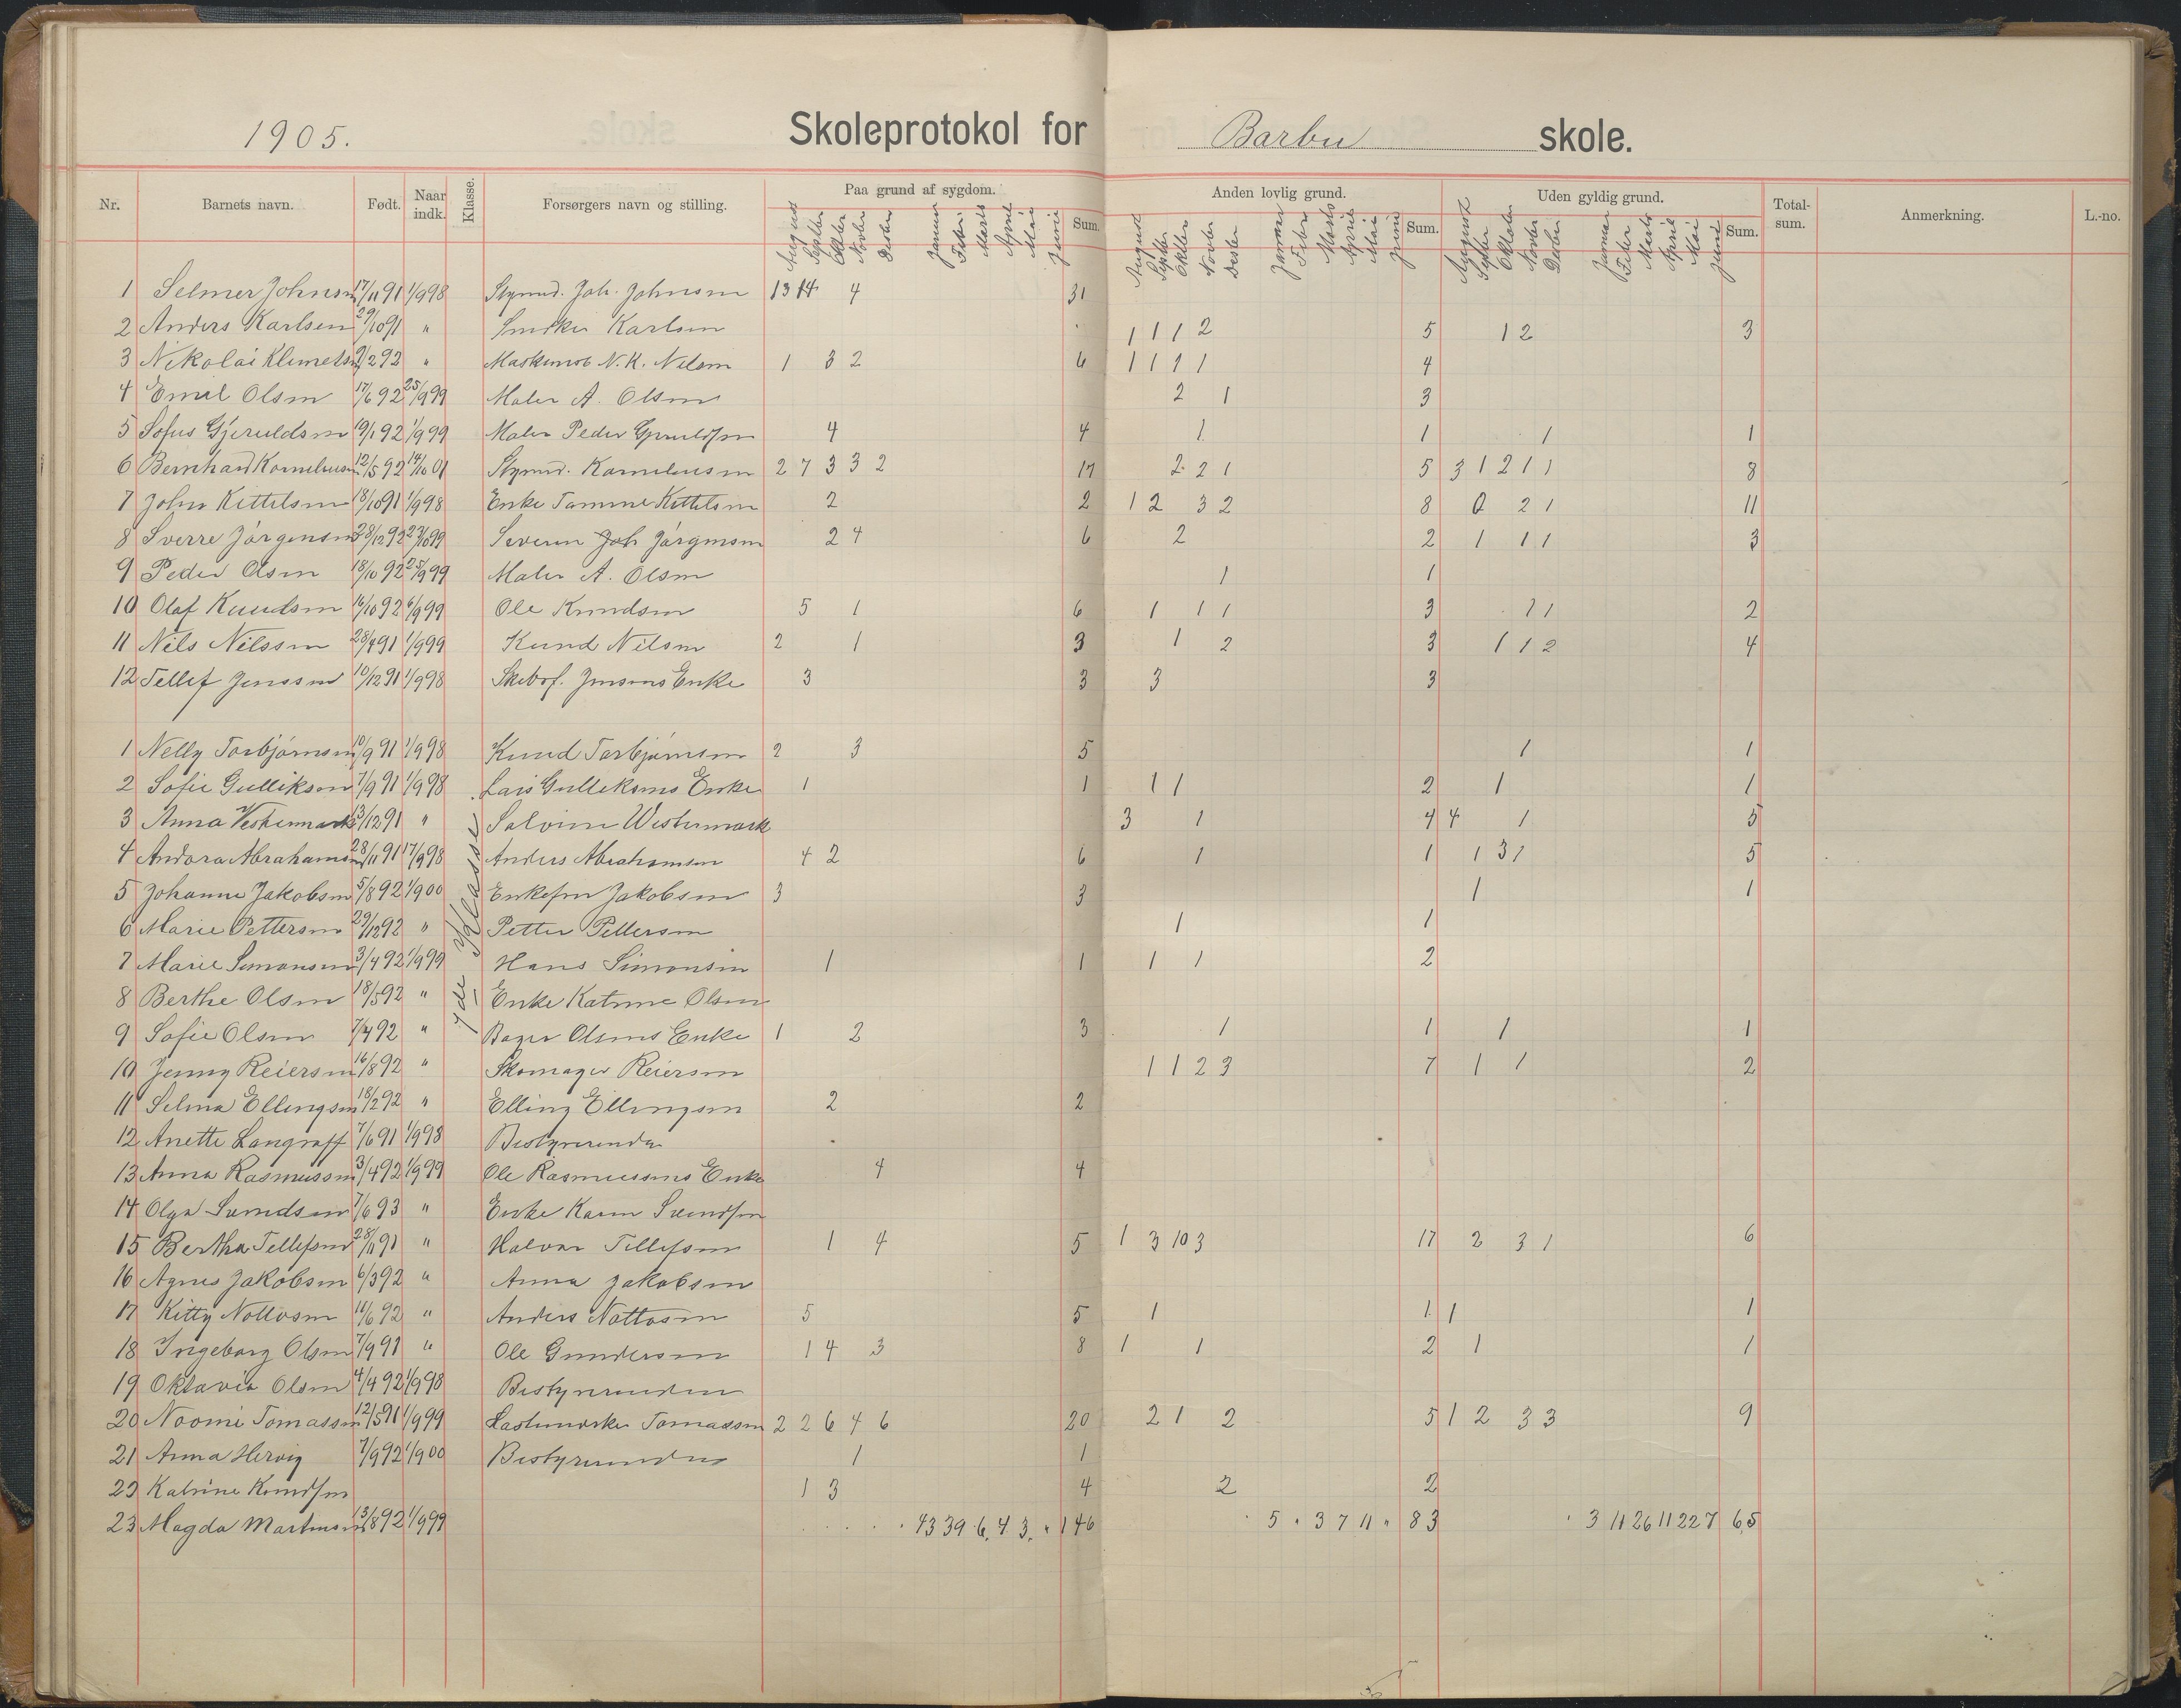 1905.
Skoleprotokol for Barbu skole.
Nr. Barnets navn. Født. Naar indk. Klasse. Forsørgers navn og stilling. Paa grund af sygdom. Sum. Anden lovlig grund. Sum. Uden gyldig grund. Sum. Total-sum. Anmerkning. L.-no.
August Septbr Oktbr Novbr Desbr Januar Febr Marts April Mai Juni August Septbr Oktbr Novbr Desbr Januar Febr Marts April Mai Juni August Septbr Oktober Novbr Desbr Januar Febr Marts April Mai Juni
1 Selmer Johnsen 17/11 91 1/9 98 Styrmd. Joh. Johnsen 13 14 4 31
2 Anders Karlsen 29/10 91 " Snedker Karlsen 1 1 1 2 5 1 2 3
3 Nikolai Klemetsen 9/2 92 " Maskinist N. K. Nilsen 1 3 2 6 1 1 1 1 4
4 Emil Olsen 17/6 92 25/9 99 Maler A. Olsen 2 1 3
5 Sofus Gjeruldsen 19/1 92 1/9 99 Maler Peder Gjeruldsen 4 4 1 1 1 1
6 Bernhard Korneliusen 12/5 92 14/10 01 Styrmd. Korneliusen 2 7 3 3 2 17 2 2 1 5 3 1 2 1 1 8
7 John Kittelsen 18/10 91 1/9 98 Enke Tomine Kittelsen 2 2 1 2 3 2 8 2 1 11
8 Sverre Jørgensen 28/12 92 23/10 99 Severin Joh Jørgensen 2 4 6 2 2 1 1 1 3
9 Peder Olsen 18/10 92 25/9 99 Maler A. Olsen 1 1
10 Olaf Knudsen 16/10 92 6/9 99 Ole Knudsen 5 1 6 1 1 1 3 1 1 2
11 Nils Nilssen 28/4 91 1/9 99 Knud Nilsen 2 1 3 1 2 3 1 1 2 4
12 Tellef Jenssen 10/12 91 1/9 98 Skibsf. Jensens Enke 3 3 3 3
1 Nelly Torbjørnsen 10/9 91 1/9 98 Knud Torbjørnsen 2 3 5 1 1
2 Sofie Gulliksen 7/9 91 1/9 98 Lars Gulleksens Enke 1 1 1 1 2 1 1
3 Anna Vestermark 13/12 91 " Salvine Westermark 3 1 4 4 1 5
4 Andora Abrahamsen 28/11 91 17/9 98 Anders Abrahamsen 4 2 6 1 1 1 3 1 5
5 Johanne Jakobsen 5/8 92 1/9 00 Enkefru Jakobsen 3 3 1 1
6 Marie Pettersen 29/12 92 " Petter Pettersen 1 1
7 Marie Simonsen 3/4 92 1/9 99 Hans Simonsen 1 1 1 1 2
7de Klasse
8 Berthe Olsen 18/5 92 " Enke Katrine Olsen
9 Sofie Olsen 7/4 92 " Olsens Enke 1 2 3 1 1 1 1
10 Jenny Reiersen 16/8 92 " Skomager Reiersen 1 1 2 3 7 1 1 2
11 Selma Ellingsen 18/2 92 " Elling Ellingsen 2 2
12 Anette Langraff 7/6 91 1/9 98 Bestyrerinden
13 Anna Rasmussen 3/4 92 1/9 99 Ole Rasmussens Enke 4 4
14 Olga Svendsen 7/6 93 " Enke Karen Svendsen
15 Bertha Tellefsen 28/11 91 " Halvor Tellefsen 1 4 5 1 3 10 3 17 2 3 1 6
16 Agnes Jakobsen 6/3 92 " Anna Jakobsen
17 Kitty Nottosen 11/6 92 " Anders Nottosen 5 5 1 1 1 1
18 Ingeborg Olsen 7/9 91 " Ole Gundersen 1 4 3 8 1 1 2 1 1
19 Oktavia Olsen 4/4 92 1/9 98 Bestyrerinden
20 Noomi Tomassen 12/5 91 1/9 99 Tomassen 2 2 6 4 6 20 2 1 2 5 1 2 3 3 9
21 Anna Hervig 7/9 92 1/9 00 Bestyrerinden 1 1
22 Katrine Knudsen 1 3 4 2 2
23 Magda Martinsen 13/8 92 1/9 99 43 39 6 4 3 " 146 5 " 3 7 11 " 83 3 11 26 11 22 7 65